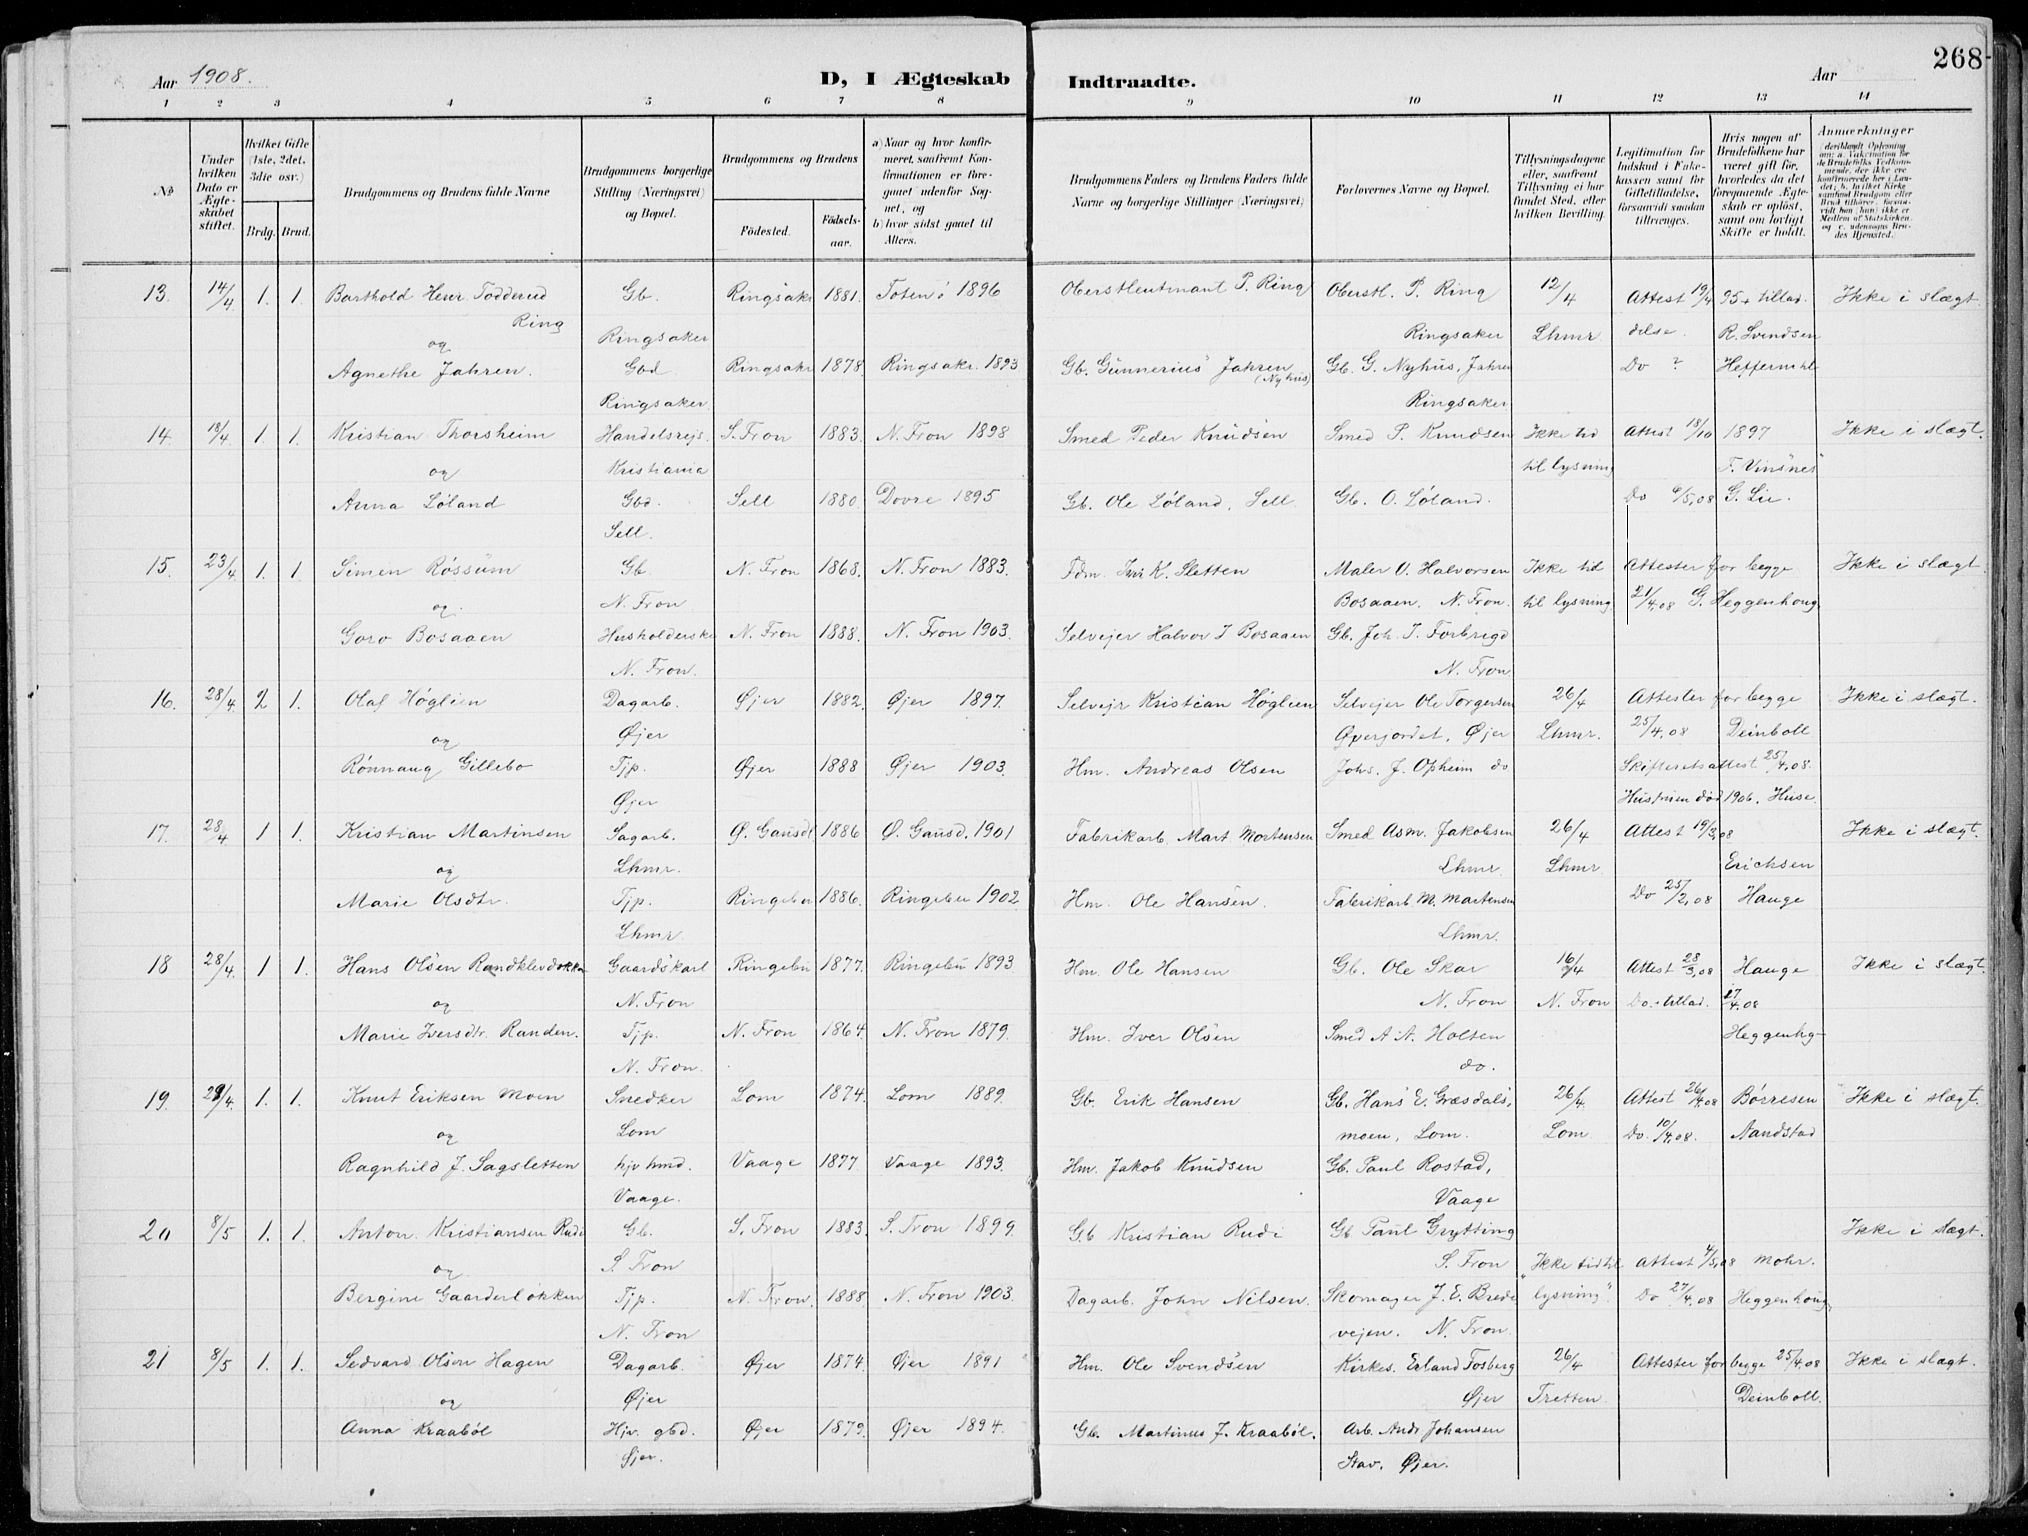 Aar 1908.
D, I Ægteskab Indtraadte.
Aar
268
1 2 3 4 5 6 7 8 9 10 11 12 13 14
No
Under hvilken Dato er Ægteskabet stiftet.
Hvilket Gifte (1ste, 2det, 3die osv.)
Brdg. Brud.
Brudgommens og Brudens fulde Navne
Brudgommens borgerlige Stilling (Næringsvei) og Bopæl.
Brudgommens og Brudens
Födested. Födsels-aar.
a) Naar og hvor konfirmeret, saafremt Konfirmationen er foregaaet udenfor Sognet, og
b) hvor sidst gaaet til Alters.
Brudgommens Faders og Brudens Faders fulde Navne og borgerlige Stillinger (Næringsvei)
Forlovernes Navne og Bopæl.
Tillysningsdagene eller, saafremt Tillysning ei har fundet Sted, efter hvilken Bevilling.
Legitimation for Indskud i Enkekassen samt for Giftetilladelse, forsaavidt saadan tiltrænges.
Hvis nogen af Brudefolkene har været gift för, hvorledes da det foregaaende Ægteskab er oplöst, samt om lovligt Skifte er holdt.
Anmærkninger
13. 14/4 1. 1. Barthold Henr. Todderud Gb. Ringsakr 1881. Toten 1896 Oberstleutnant P. Ring Oberstl. P. Ring 12/4 Attest 19/4 95 + tillad. Ikke i slægt
Ring Ringsaker Ringsaker Lhmr delse. R. Svendsen
og
Agnethe Jahren. Gbd Ringsakr 1878 Ringsakr. 1893 Gb. Gunnerius Jahren (Nyhus) Gb. G. Nyhus, Jahren Do ?
Ringsaker. Ringsaker
14. 18/4 1. 1. Kristian Thorsheim Handelsrejs. S. Fron 1883. N. Fron 1898 Smed Peder Knudsen Smed P. Knudsen Ikke tid Attest 18/10 1897 Ikke i slægt.
og Kristiania til lysning
Anna Løland Gbd. Sell 1880. Dovre 1895 Gb. Ole Løland, Sell Gb. O. Løland. Do 6/5,08 G. Lie.
Sell.
15. 23/4. 1. 1 Simen Røssum Gb N. Fron 1868. N. Fron 1883. K. Sletten Maler O. Halvorsen Ikke tid Attester for begge Ikke i slægt
og. N. Fron Bosaaen. N. Fron. til lysning 21/4,08 G. Heggenhoug
Goro Bosaaen Husholderske N. Fron 1888. N. Fron 1903. Selvejer Halvor J Bosaaen Gb. Joh. J. Forbrigd
N. Fron. N. Fron
16. 28/4. 2 1. Olaf Høglien Dagarb. Øjer 1882. Øjer 1897. Selvejr Kristian Høglien Selvejer Ole Torgersen 26/4 Attester for begge Ikke i slægt.
og Øjer Øverjordet, Øjer Lhmr. 25/4,08 Deinboll
Rønnaug Gillebo Tjp. Øjer 1888 Øjer 1903. Hm. Andreas Olsen Johs. J. Opheim do Skifteretsattest 25/4,08.
Øjer Hustruen død 1906. Huse
17. 28/4 1 1. Kristian Martinsen Sagarb. Ø. Gausd. 1886 Ø. Gausd. 1901 Fabrikarb. Mart Mortensen Smed Asm. Jakobsen 26/4 Attest 19/3,08 Ikke i slægt.
og Lhmr. Lhmr. Lhmr Erichsen
Marie Olsdtr. Tjp. Ringebu 1886. Ringebu 1902. Hm. Ole Hansen. Fabrikarb M. Martensen Do 25/2,08 Hauge
Lhmr. Lhmr.
18 28/4. 1 1. Hans Olsen Randklevdokken Gaardskarl Ringebu 1877. Ringebu 1893 Hm. Ole Hansen Gb. Ole Skar 16/4 Attest 28/3,08 Hauge Ikke i slægt.
og N. Fron N. Fron N. Fron Do. + tillad. 27/4,08
Marie Iversdtr. Randen. Tjp. N. Fron 1864. N. Fron 1879. Hm. Iver Olsen Smed A A. Holten Heggenhg-
N. Fron. do.
19. 29/4. 1. 1. Knut Eriksen Moen Snedker Lom 1874. Lom 1889. Gb. Erik Hansen Gb. Hans E. Græsdals- 26/4. Attest 26/4,08 Børresen Ikke i slægt.
og Lom moen, Lom. Lom Do. 10/4,08. Aandstad
Ragnhild J. Sagsletten hjv hmd. Vaage 1877. Vaage 1893. Hm. Jakob Knudsen Gb. Paul Rostad,
Vaage. Vaage
20 8/5 1. 1. Anton Kristiansen Rudi Gb. S. Fron 1883. S. Fron 1899. Gb Kristian Rudi Gb Paul Grytting Ikke i slægt.
og S. Fron S. Fron "Ikke tid til Attest 4/5,08 Mohr.
Bergine Gaarderløkken Tjp. N. Fron. 1888. N. Fron 1903. Dagarb. John Nilsen. Skomager J. E. Brede lysning". Do 27/4,08 Heggenhoug
N. Fron vejen. N. Fron
21 8/5 1. 1. Sedvard Olsen Hagen Dagarb. Øjer 1874. Øjer 1891 Hm. Ole Svendsen Kirkes. Erland Fosberg 26/4 Attester for begge 25/4,08 Ikke i slægt.
og Øjer Øjer Tretten Deinboll.
Anna Kraabøl Hjv. gbd. Øjer 1879. Øjer 1894. Gb. Martinus J. Kraabøl. Arb. Andr Johansen
Øjer. Stav, Øjer.